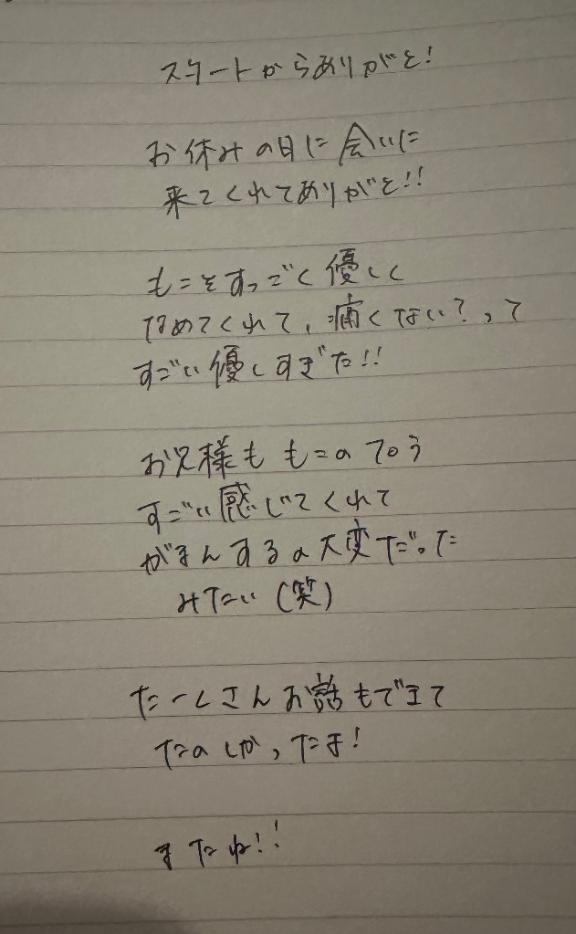 スタートからありがと!
お休みの日に会いに
来てくれてありがと!!
もこをすっごく優しく
なめてくれて、痛くない?って
すごい優しすぎた!!
お兄様ももこのてこう
すごい感じてくれて
がまんするの大変だった
みたい(笑)
たーくさんお話もできて
たのしかったよ!
またね!!